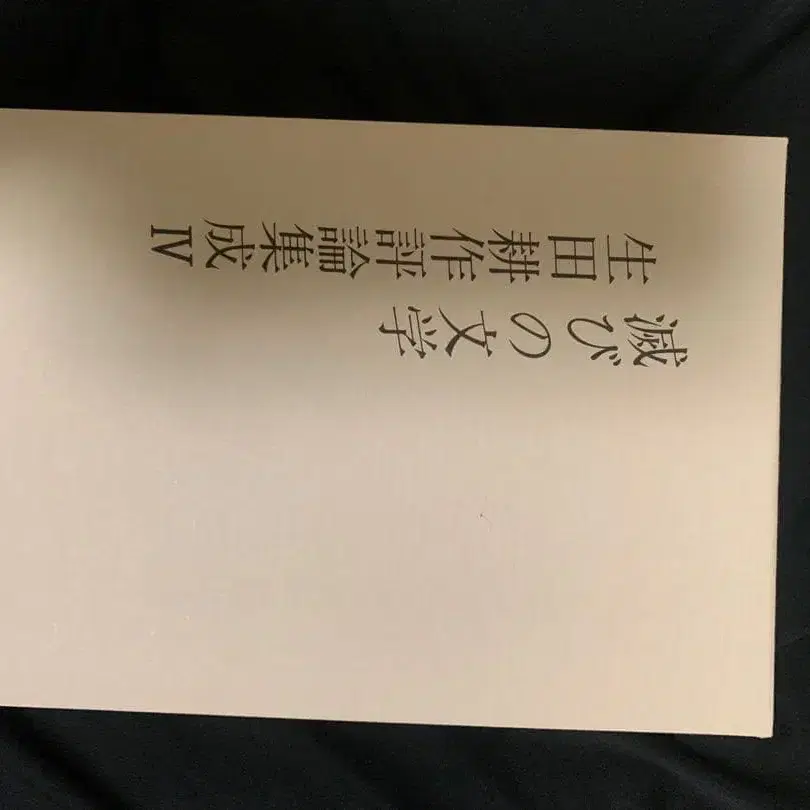 滅びの文学
生田耕作評論集成IV